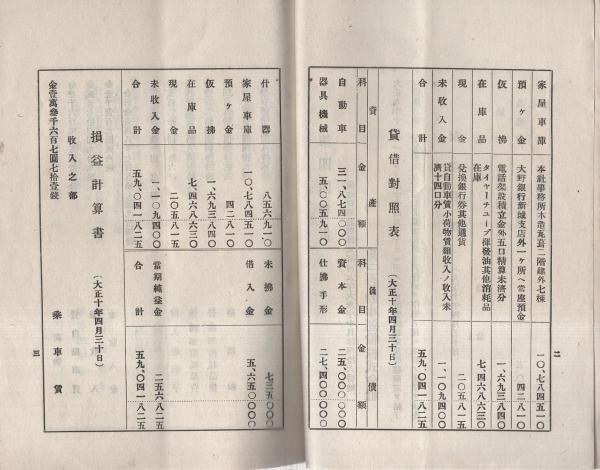 家屋車庫 本社事務所木造瓦葺二階建外七棟 一〇、七八四五一〇
預ヶ金 大野銀行新城支店外一ヶ所ヘ當座預金 四二八一〇
仮拂 電話架設積立金外五口精算未濟分 一、六九三八四〇
在庫品 タイヤーチューブ揮發油其他消耗品在庫 七、四六八六三〇
現金 兌換銀行券其他通貨 二〇五八一五
未收入金 貸自動車賃小荷物賃雜收入ノ收入未濟十四口分 一、一〇九四〇〇
合計 五九、〇四一八二五
二
貸借對照表 (大正十年四月三十日)
資産 負債
科目 金額 科目 金額
自動車 三一、八七四〇〇〇 資本金 二五、〇〇〇〇〇〇
器具機械 五、〇〇五九一〇 仕拂手形 二七、四〇〇〇〇〇
什器 八五六九一〇 未拂金 七三五〇〇〇
家屋車庫 一〇、七八四五一〇 借入金 五、六五〇〇〇〇
預ヶ金 四二八一〇
仮拂 一、六九三八四〇
在庫品 七、四六八六三〇
現金 二〇五八一五
未收入金 一、一〇九四〇〇 當期純益金 二五六八二五
合計 五九、〇四一八二五 合計 五九、〇四一八二五
損益計算書 (大正十年四月三十日)
收入之部
金壹萬參千六百七圓七拾壹錢 乘車賃
三